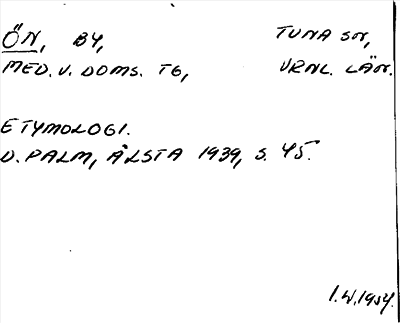 ÖN, BY, TUNA SN,
MED. V. DOMS. TG, VRNL. LÄN.
ETYMOLOGI.
D. PALM, ÅLSTA 1939, S. 45.
I.W. 1954.